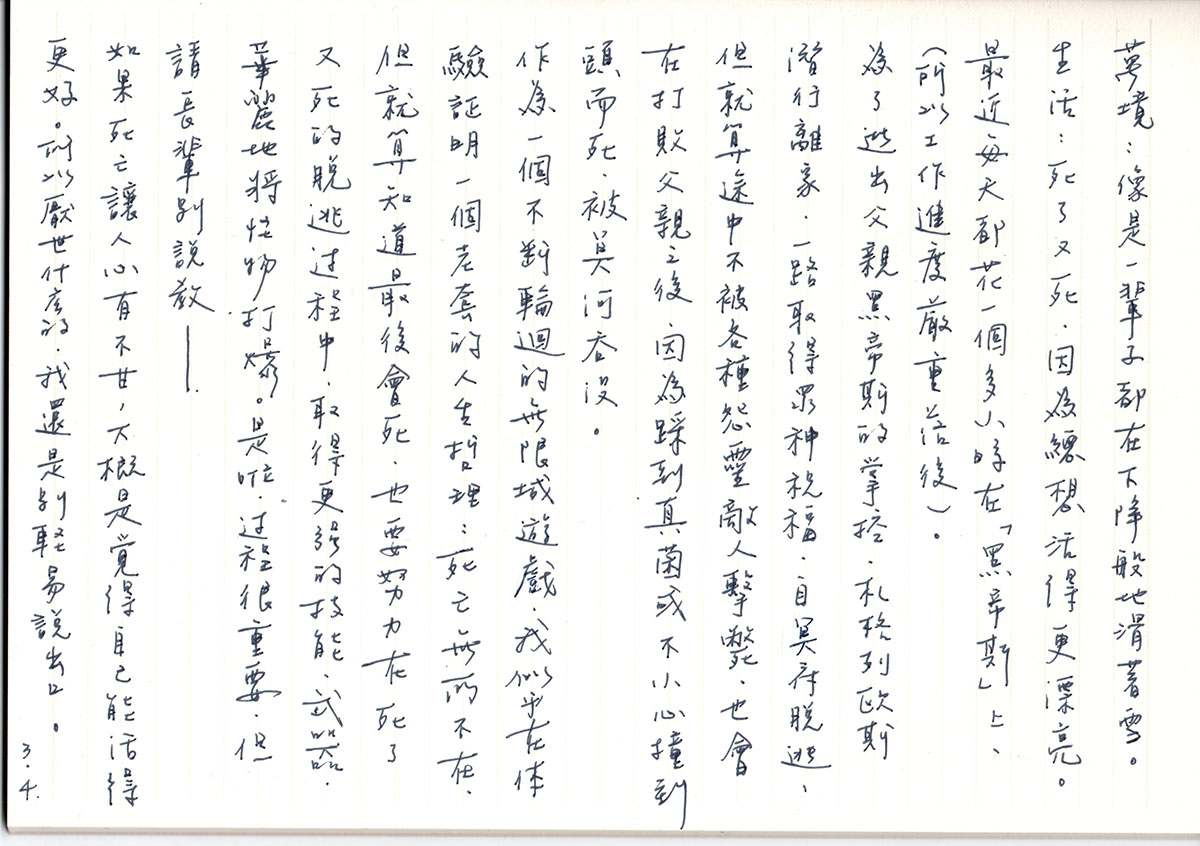 夢境：像是一輩子都在下降般地滑著雪。
生活：死了又死．因為總想活得更漂亮。
最近每天都花一個多小時在「黑帝斯」上、
（所以工作進度嚴重落後）。
為了逃出父親黑帝斯的掌控．札格列歐斯
潛行離家．一路取得眾神祝福．自冥府脫逃、
但就算途中不被各種怨靈敵人擊斃．也會
在打敗父親之後．因為踩到真菌或不小心撞到
頭而死．被冥河吞沒。
作為一個不斷輪迴的無限域遊戲．我似乎在体
驗証明一個老套的人生哲理：死亡無所不在．
但就算知道最後會死．也要努力在死了
又死的脫逃过程中．取得更強的技能、武器．
華麗地將怪物打爆。是啦．过程很重要．但
請長輩別說教——．
如果死亡讓人心有不甘，大概是覺得自己能活得
更好。所以厭世什麼的．我還是別輕易說出口。
3.4.